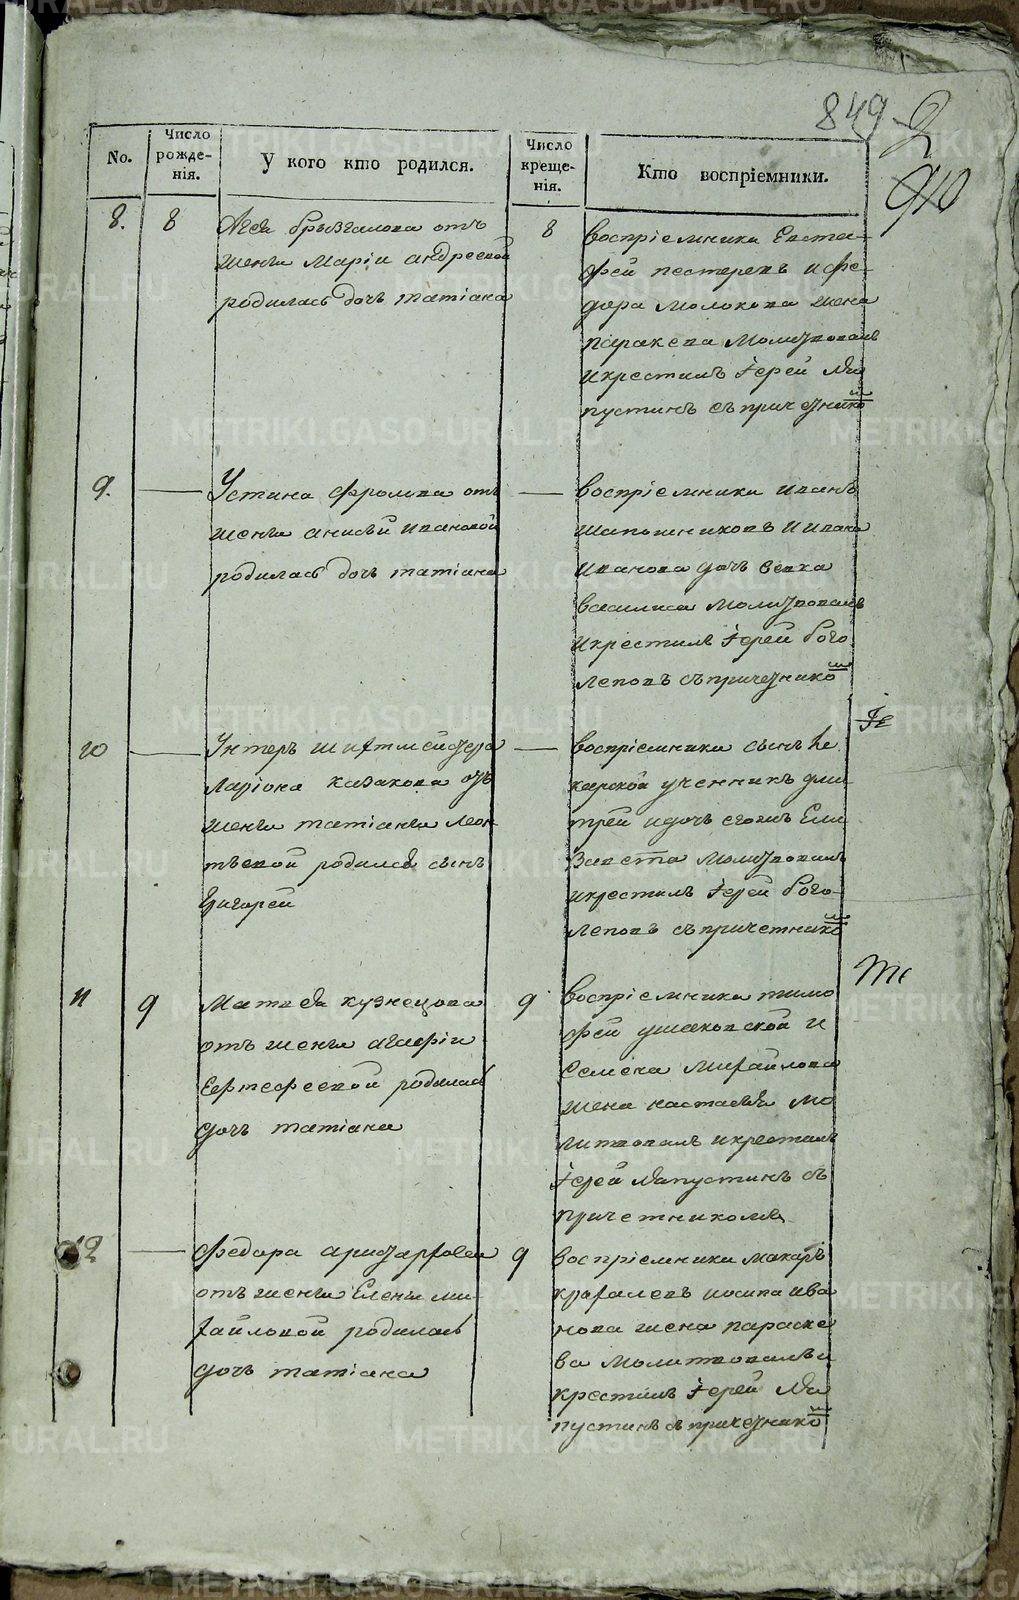 849
2
910
No.
Число рожде-нія.
У кого кто родился.
Число креще-нія.
Кто воспріемники.
8.
8
брызгалова отъ
жены Маріи андреевой
родилась дочь татіана
8
воспріемники Евста-
фей пестеревъ и фе-
дора Молокова жена
параскева Молитвовалъ
и крестилъ Іерей Ла
пустинъ съ причетнико
9.
Устина фролова отъ
жены анисьи ивановой
родилась дочь татіана
воспріемники иванъ
шапошниковъ и ивана
иванова дочь девка
василиса Молитвовалъ
и крестилъ Іерей бого
леповъ съ причетнико
10
Унтеръ шихтмейстера
Ларіона казакова отъ
жены татіаны Леон
тьевой родился сынъ
Григорей
воспріемники сынъ
ученникъ дми
трей и дочь Ели
завета Молитвовалъ
и крестилъ Іерей бого-
леповъ съ причетнико
11
9
Матвея кузнецова
отъ жены агафіи
родилась
дочь татіана
9
воспріемники тимо
фей ушаковской и
семена Михайлова
жена настасья мо
литвовалъ и крестилъ
Іерей Лапустинъ съ
причетниками
12
федора
отъ жены Елены ми-
хайловой родилась
дочь татіана
9
воспріемники макаръ
иосипа ива
нова жена параске
ва Молитвовалъ и
крестилъ Іерей Ла
пустинъ съ причетнико
METRIKI.GASO-URAL.RU